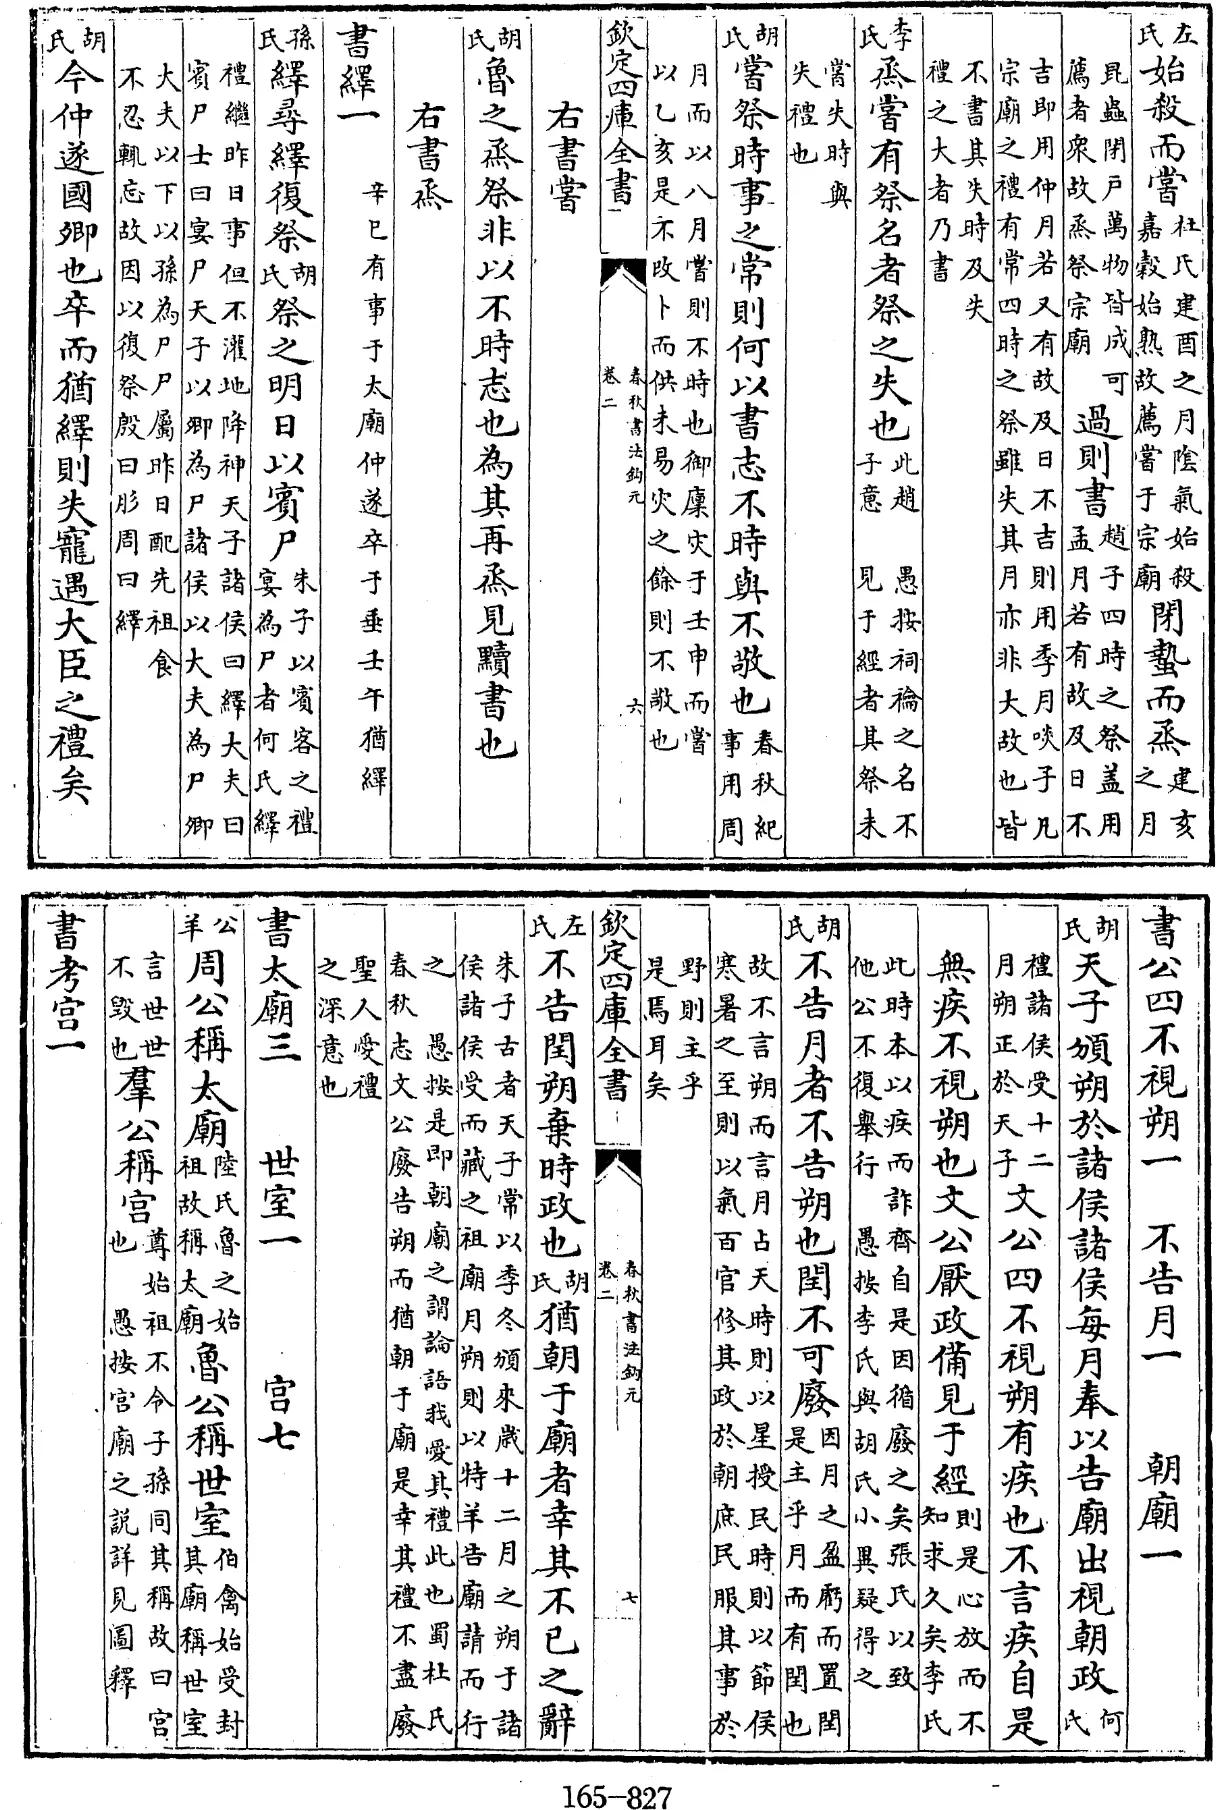 左氏始殺而嘗杜氏建酉之月陰氣始殺嘉穀始熟故薦嘗于宗廟閉蟄而烝建亥之月
昆蟲閉戶萬物皆成可薦者衆故烝祭宗廟過則書趙子四時之祭蓋用孟月若有故及日不
吉即用仲月若又有故及日不吉則用季月啖子凡宗廟之禮有常四時之祭雖失其月亦非大故也皆
不書其失時及失禮之大者乃書
李氏烝嘗有祭名者祭之失也此趙子意 愚按祠禴之名不見于經者其祭未
嘗失時與失禮也
胡氏嘗祭時事之常則何以書志不時與不敬也春秋紀事用周
月而以八月嘗則不時也御廩灾于壬申而嘗以乙亥是不改卜而供未易灾之餘則不敬也
欽定四庫全書 春秋書法鉤元 卷二 六
右書嘗
胡氏魯之烝祭非以不時志也為其再烝見黷書也
右書烝
書繹一 辛巳有事于太廟仲遂卒于垂壬午猶繹
孫氏繹尋繹復祭胡氏祭之明日以賓尸朱子以賓客之禮宴為尸者何氏繹
禮繼昨日事但不灌地降神天子諸侯曰繹大夫曰賓尸士曰宴尸天子以卿為尸諸侯以大夫為尸卿
大夫以下以孫為尸尸屬昨日配先祖食不忍輒忘故因以復祭殷曰肜周曰繹
胡氏今仲遂國卿也卒而猶繹則失寵遇大臣之禮矣
書公四不視朔一 不告月一 朝廟一
胡氏天子頒朔於諸侯諸侯每月奉以告廟出視朝政何氏
禮諸侯受十二月朔正於天子文公四不視朔有疾也不言疾自是
無疾不視朔也文公厭政備見于經則是心放而不知求久矣李氏
此時本以疾而詐齊自是因循廢之矣張氏以致他公不復舉行 愚按李氏與胡氏小異疑得之
胡氏不告月者不告朔也閏不可廢因月之盈虧而置閏是主乎月而有閏也
故不言朔而言月占天時則以星授民時則以節候寒暑之至則以氣百官修其政於朝庶民服其事於
野則主乎是焉耳矣
欽定四庫全書 春秋書法鉤元 卷二 七
左氏不告閏朔棄時政也胡氏猶朝于廟者幸其不已之辭
朱子古者天子常以季冬頒來歲十二月之朔于諸侯諸侯受而藏之祖廟月朔則以特羊告廟請而行
之 愚按是即朝廟之謂論語我愛其禮此也蜀杜氏春秋志文公廢告朔而猶朝于廟是幸其禮不盡廢
聖人愛禮之深意也
書太廟三 世室一 宮七
公羊周公稱太廟陸氏魯之始祖故稱太廟魯公稱世室伯禽始受封其廟稱世室
言世世不毀也羣公稱宮尊始祖不令子孫同其稱故曰宮也 愚按宮廟之説詳見圖釋
書考宮一
165-827